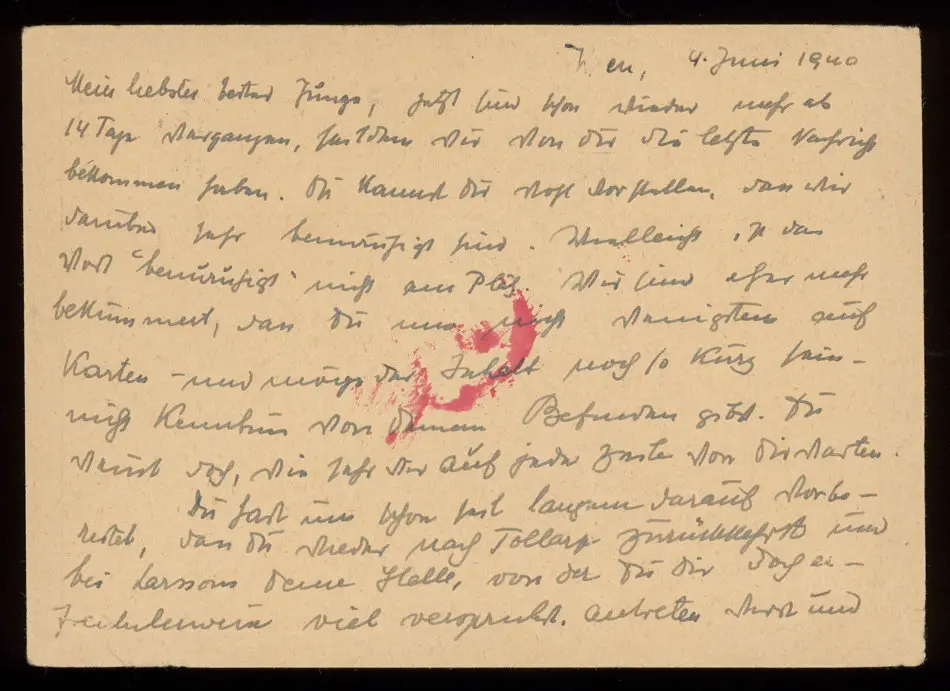 Wien, 4. Juni 1940
Mein liebster bester Junge, jetzt sind schon wieder mehr als
14 Tage vergangen, seitdem wir von dir die letzte Nachricht
bekommen haben. Du kannst dir wohl vorstellen, dass wir
darüber sehr beunruhigt sind. Vielleicht ist das
Wort "beunruhigt" nicht am Platz. Wir sind eher mehr
bekümmert, dass du uns nicht wenigstens auf
Karten - und möge der Inhalt noch so kurz sein -
nicht Kenntnis von deinem Befinden gibst. Du
weisst doch, wie sehr wir auf jede Zeile von dir warten.
Du hast uns schon seit langem darauf vorbe-
reitet, dass du wieder nach Tollarp zurückkehrst und
bei Larssons deine Stelle, von der du dir doch er-
viel versprichst, antreten wirst und